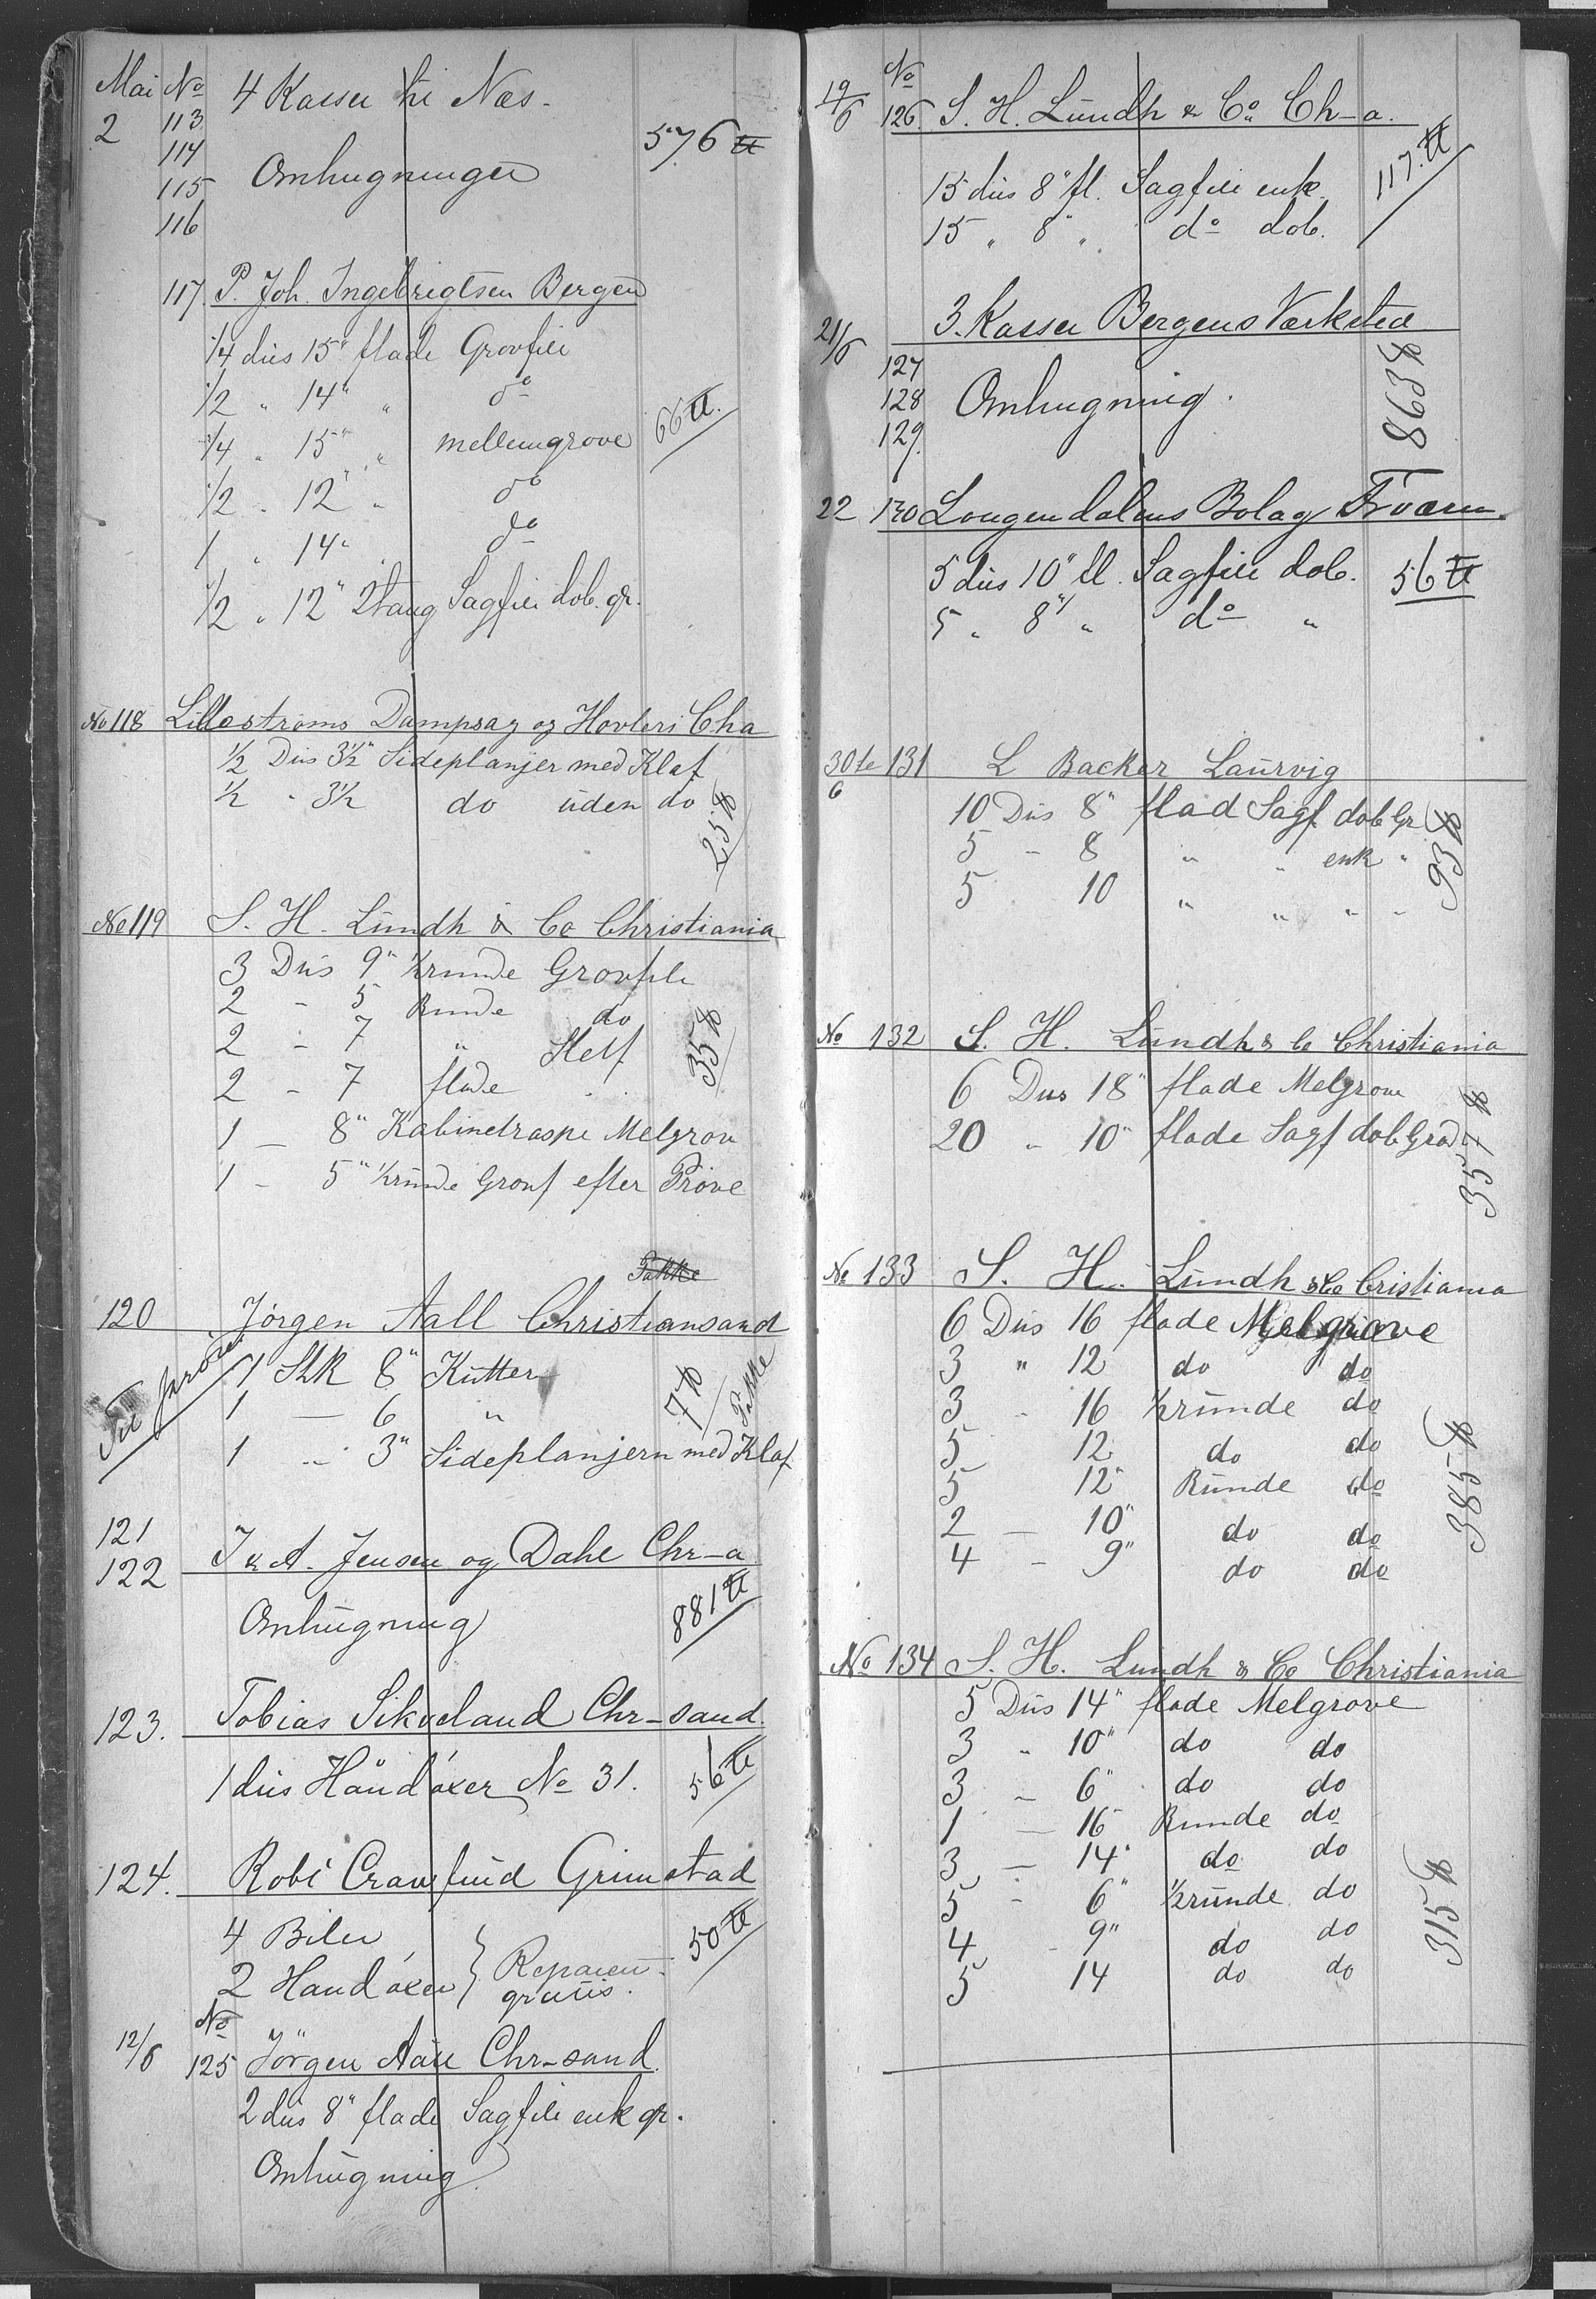 Mai No 4 Kasser til Næs.
2 113
114 576 ℔
115 Omhugninger
116
117. P. Joh. Ingebrigtsen Bergen
1/4 dus 15" flade Grovfile
1/2 " 14" " do
1/4 " 15" " mellemgrove 66 ℔.
1/2 " 12" " do
1 " 14" " do
1/2 " 12" Stang Sagfile dob. gr.
No 118 Lillestrøms Dampsag og Høvleri Cha
1/2 Dus 3½" Sideplanjer med Klaf
1/2 " 3½ do uden do 25 ℔
No 119 S. H. Lundh & Co Christiania
3 Dus 9" ½runde Grovfile
2 - 5 Runde do
2 - 7 " Sletf 35 ℔
2 - 7 flade "
1 - 8" Kabinetraspe Melgrov
1 - 5" ½runde Grovf efter Prøve
Pakke
120 Jørgen Aall Christiansand
Til prøve 1 Stk 8" Kutter
1 - 6 " 7 ℔ Pakke
1 - 3" Sideplanjern med Klaf
121
122 J & A. Jensen og Dahl Chr-a
Omhugning 881 ℔
123. Tobias Sikveland Chr-sand.
1 dus Håndöxer No 31. 56 ℔
124. Robt Crawfurd Grimstad
4 Biler
2 Handöxer } Reparert gratis. 50 ℔
12/6 No 125 Jörgen Aall Chr-sand.
2 dus 8" flade Sagfile enk gr.
Omhugning
19/6 No 126. S. H. Lundh & Co. Ch-a.
15 dus 8" fl. Sagfile enk. 117. ℔
15 " 8 " do dob.
21/6 3. Kasser Bergens Værksted
127
128 Omhugning. 863 ℔
129.
22 130 Lougendalens Bolag Fr værn.
5 dus 10" fl. Sagfile dob. 56 ℔
5 " 8" " do "
30te/6 131 L Backer Laurvig
10 Dus 8" flad Sagf dob Gr
5 - 8 " " enk " 93 ℔
5 10 " " " "
No 132 S. H. Lundh & Co Christiania
6 Dus 18" flade Melgrove
20 " 10" flade Sagf dob Grad 357 ℔
No 133 S. H. Lundh & Co Cristiania
6 Dus 16 flade Melgrove
3 " 12 do do
3 " 16 ½runde do
5 12 do do
5 12" Runde do 385 ℔
2 - 10" do do
4 - 9" do do
No 134 S. H. Lundh & Co Christiania
5 Dus 14" flade Melgrove
3 " 10" do do
3 - 6" do do
1 - 16 Runde do
3 - 14" do do
5 - 6" ½runde do
4 - 9" do do 315 ℔
5 14 do do